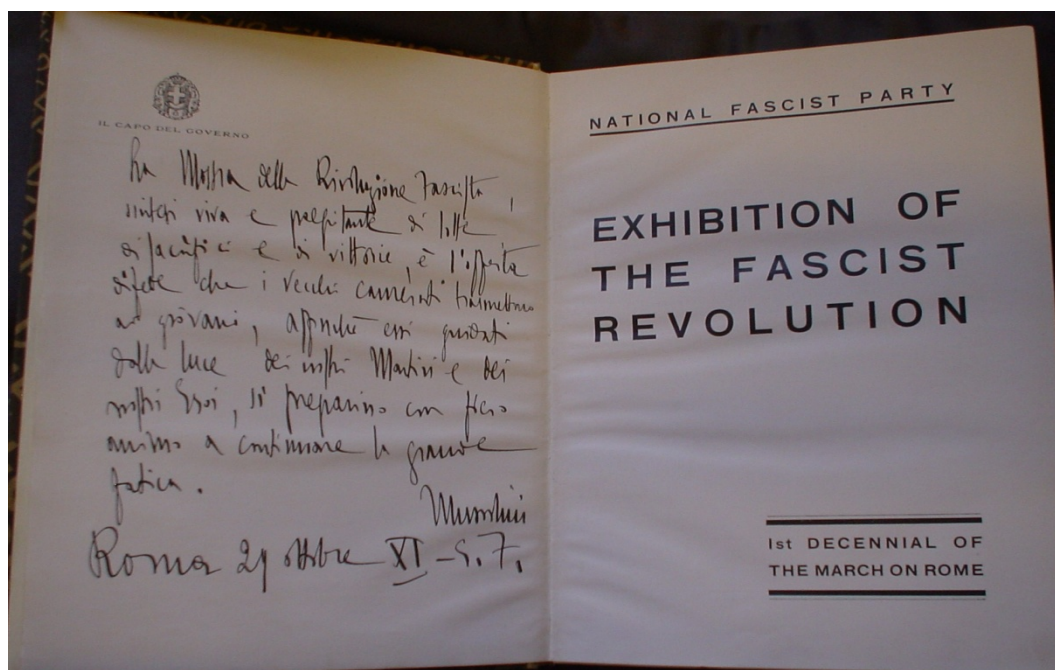 IL CAPO DEL GOVERNO
La Mostra della Rivoluzione Fascista,
sintesi viva e palpitante di lotte
di sacrifici e di vittorie, è l'offerta
di fede che i vecchi camerati trasmettono
ai giovani, affinché essi guidati
dalla luce dei nostri Martiri e dei
nostri Eroi, si preparino con fiero
animo a continuare la grande
fatica.
Mussolini
Roma 29 ottobre XI - E.F.
NATIONAL FASCIST PARTY
EXHIBITION OF
THE FASCIST
REVOLUTION
1st DECENNIAL OF
THE MARCH ON ROME